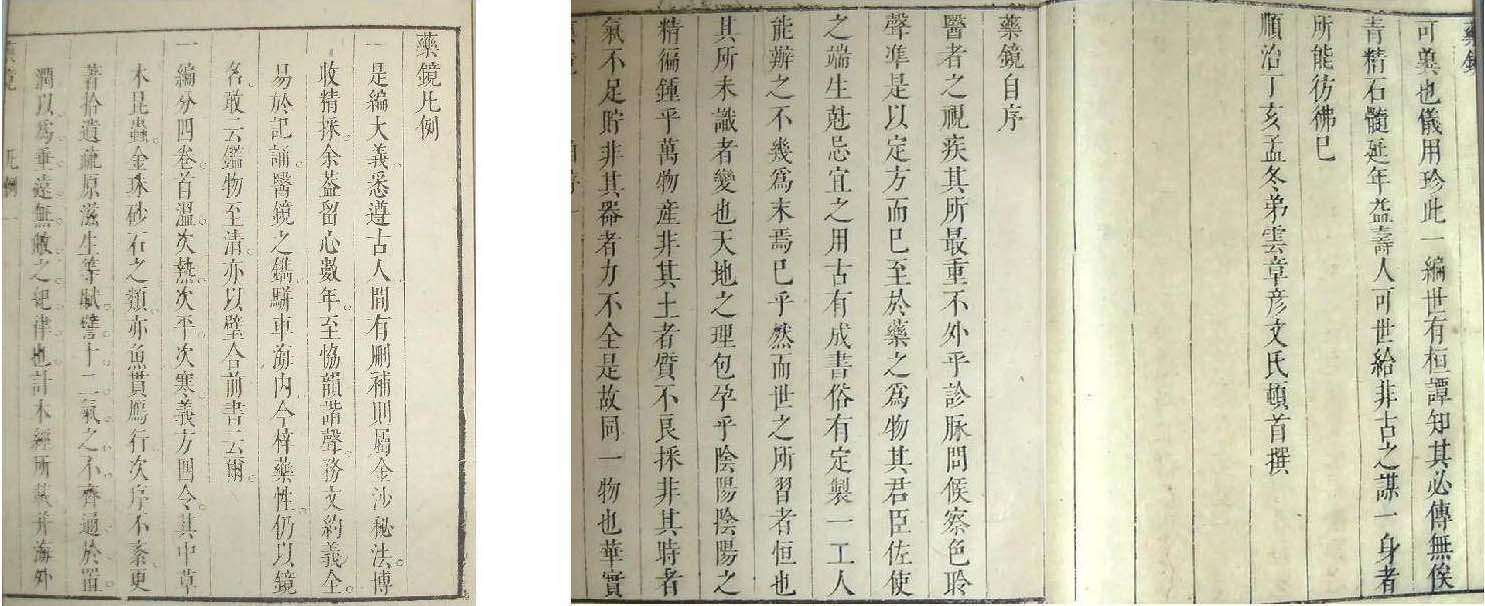 藥鏡凡例
一是編大義悉遵古人間有刪補則屬金沙秘法博
收精採余葢留心數年至恊韻諧聲務文約義全
易於記誦醫鏡之鐫駢車海內今梓藥性仍以鏡
名敢云鑑物至清亦以璧合前書云爾
一編分四卷首溫次熱次平次寒義方四令其中草
木昆蟲金珠砂石之類亦魚貫鴈行次序不紊更
著拾遺疏原滋生等賦譬十二氣之不齊通於置
潤以為垂遠無敝之紀律也計本經所載并海外
藥鏡 凡例 一
藥鏡
可興也儀用珍此一編世有桓譚知其必傳無俟
青精石髓延年益壽人可世給非古之謀一身者
所能彷彿巳
順治丁亥孟冬弟雲章彥文氏頓首撰
藥鏡自序
醫者之視疾其所最重不外乎診脉問候察色聆
聲準是以定方而巳至於藥之為物其君臣佐使
之端生尅忌宜之用古有成書俗有定製一工人
能辦之不幾為末焉巳乎然而世之所習者恒也
其所未識者變也天地之理包孕乎陰陽陰陽之
精徧鍾乎萬物産非其土者質不良採非其時者
氣不足貯非其器者力不全是故同一物也華實
藥鏡 自序 一